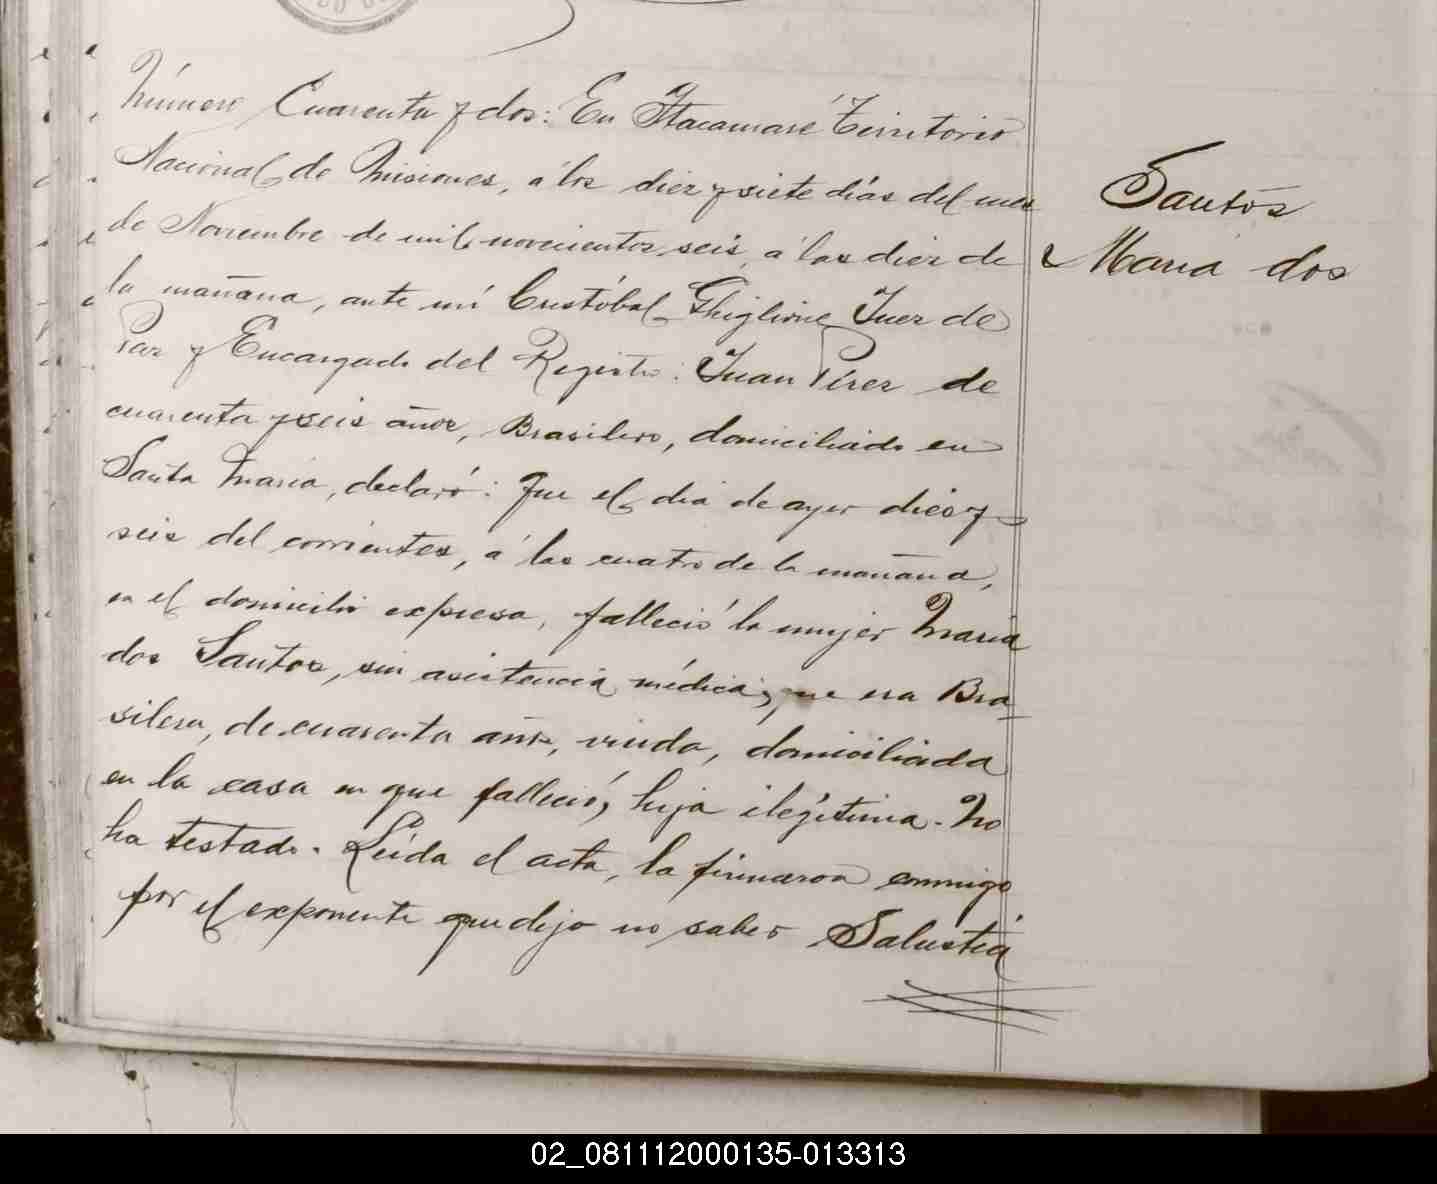 Número Cuarenta y dos: En Itacaruaré Territorio
Nacional de Misiones, á los diez y siete días del mes
de Noviembre de mil novecientos seis, á las diez de
la mañana, ante mí Cristóbal Ghiglione Juez de
Paz y Encargado del Registro: Juan Pírez de
cuarenta y seis años, Brasilero, domiciliado en
Santa María, declaró: Que el día de ayer diez y
seis del corrientes, á las cuatro de la mañana,
en el domicilio expresa, falleció la mujer María
dos Santos, sin asistencia médica; que era Bra-
silera, de cuarenta años, viuda, domiciliada
en la casa en que falleció, hija ilegítima. No
ha testado. Leída el acta, la firmaron conmigo
por el exponente que dijo no saber Salustia
Santos
María dos
02_081112000135-013313